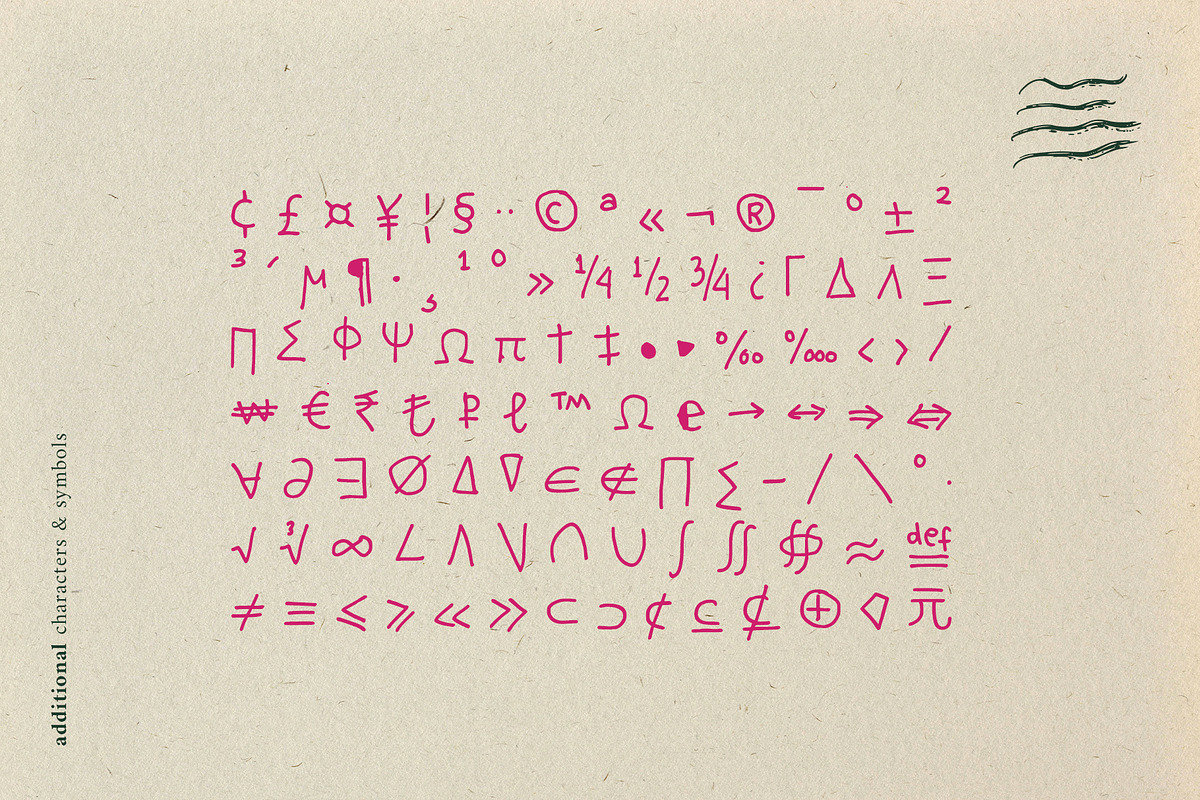 ¢ £ ¤ ¥ ¦ § ¨ © ª « ¬ ® ¯ ° ± ²
³ ´ µ ¶ · ¸ ¹ º » ¼ ½ ¾ ¿ Γ Δ Λ Ξ
Π Σ Φ Ψ Ω π † ‡ • ‣ ‰ ‱ ‹ › ⁄
₩ € ₹ ₺ ₽ ℓ ™ Ω ℮ → ↔ ⇒ ⇔
∀ ∂ ∃ ∅ ∆ ∇ ∈ ∉ ∏ ∑ − ∕ ∖ ∘ ∙
√ ∛ ∞ ∠ ∧ ∨ ∩ ∪ ∫ ∬ ∯ ≈ ≝
≠ ≡ ≤ ≥ ≪ ≫ ⊂ ⊃ ⊄ ⊆ ⊈ ⊕
additional characters & symbols